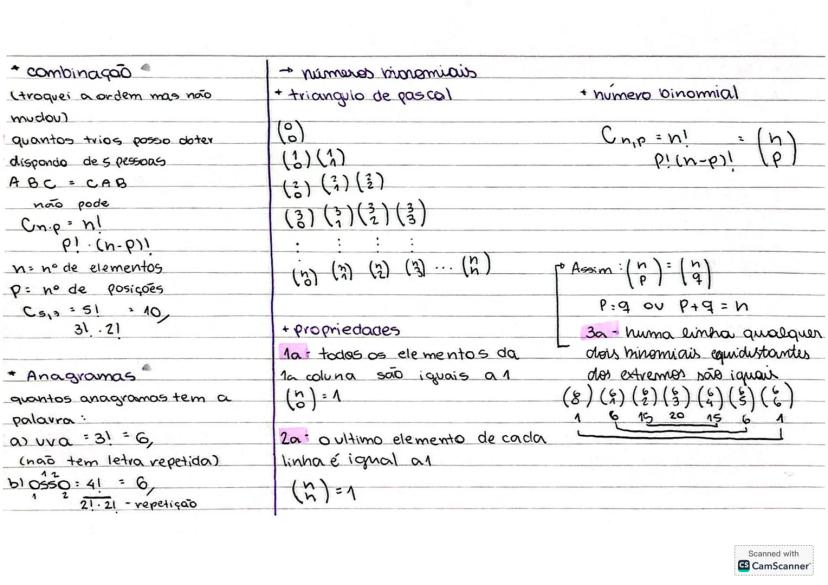 * combinação
(troquei a ordem mas não
mudou)
quantos trios posso obter
dispondo de 5 pessoas
A B C = C A B
não pode
Cn.p = n!
p! . (n-p)!
n = nº de elementos
p = nº de posições
C5,3 = 5! = 10,
3! . 2!
* Anagramas
quantos anagramas tem a
palavra:
a) uva = 3! = 6,
(não tem letra repetida)
b) osso = 4! = 6,
1 2
1 2
2! . 2! - repetição
→ números binomiais
* triangulo de pascal
(0 0)
(1 0) (1 1)
(2 0) (2 1) (2 2)
(3 0) (3 1) (3 2) (3 3)
⋮ ⋮ ⋮ ⋮
(n 0) (n 1) (n 2) (n 3) ... (n n)
+ propriedades
1a - todos os elementos da
1a coluna são iguais a 1
(n 0) = 1
2a - o ultimo elemento de cada
linha é igual a 1
(n n) = 1
* número binomial
Cn,p = n! = (n p)
p! (n-p)!
Assim : (n p) = (n q)
p = q ou p + q = n
3a - numa linha qualquer
dois binomiais equidistantes
dos extremos são iguais
(6 0) (6 1) (6 2) (6 3) (6 4) (6 5) (6 6)
1 6 15 20 15 6 1
Scanned with
CS CamScanner